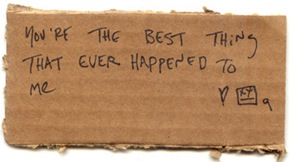 YOU'RE THE BEST THiNg
THAT EVER HAPPENED TO
Me